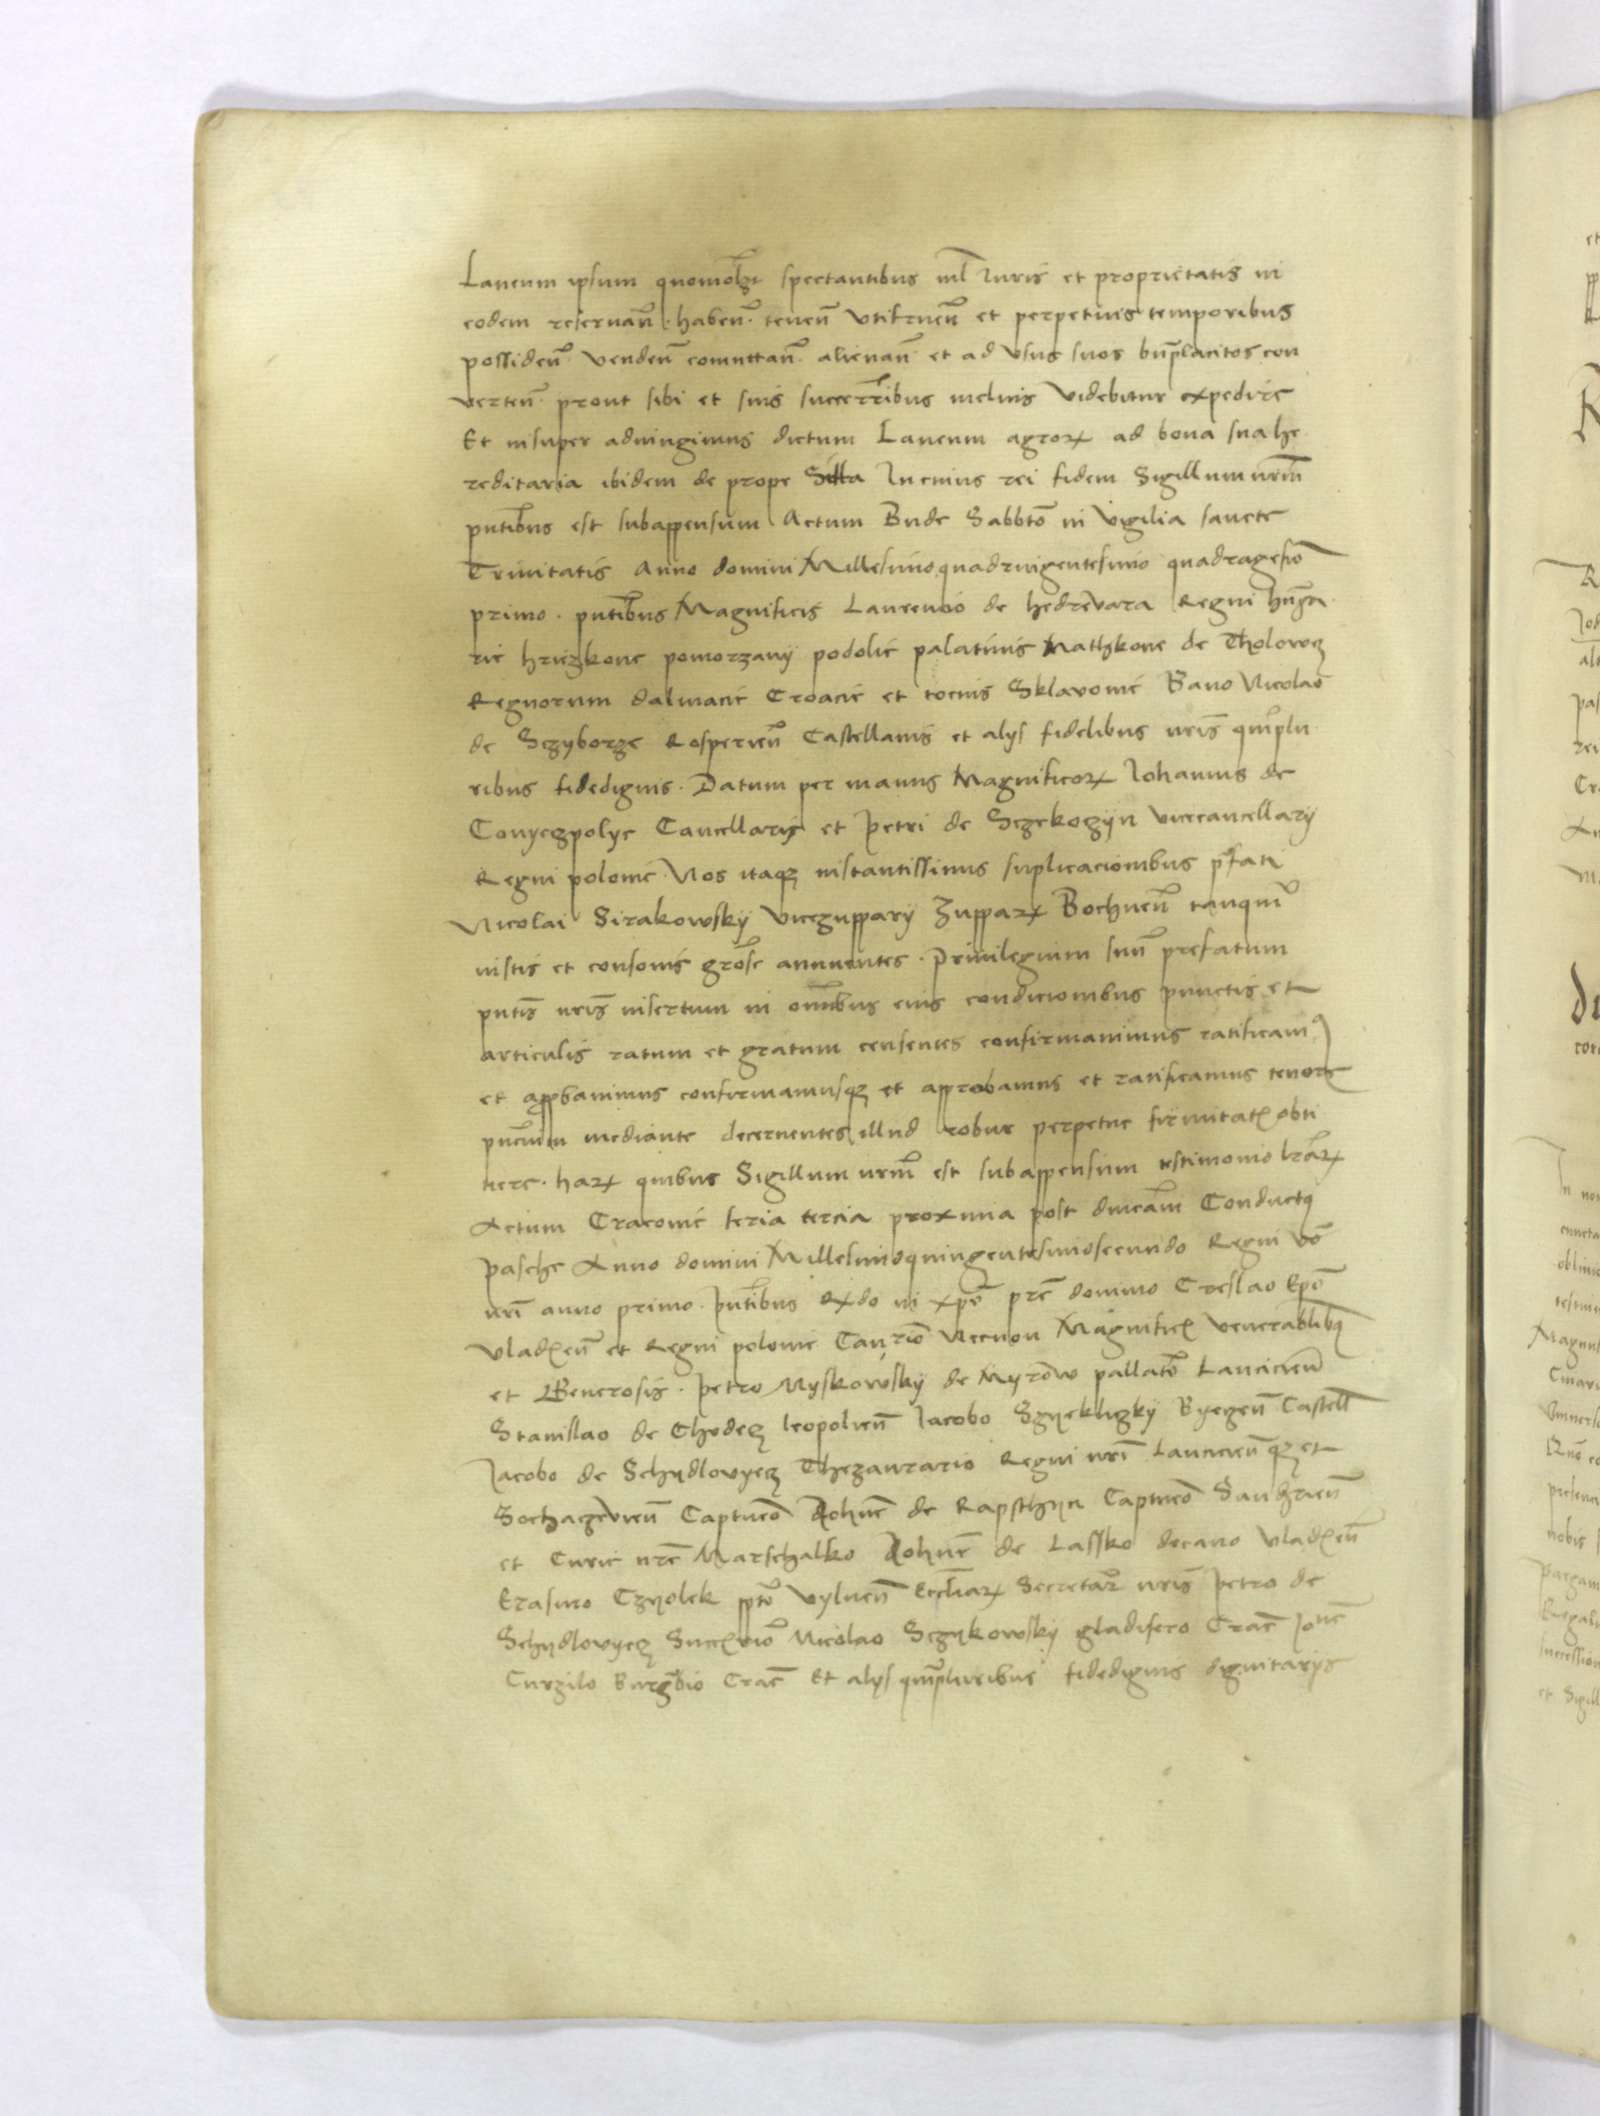 Laneum ipsum quomolꝫt spectantibus nil Iuris et proprietatis in
eodem reservañ. habeñ. teneñ vtifrueñ et perpetuis temporibus
possideñ. vendeñ comuttañ. alienañ et ad vsus suos bn̄placitos con
verteñ. prout sibi et suis succeꝛ̄ibus melius videbitur expedire
Et insuper adiungimus dictum Laneum agroꝝ ad bona sua he
reditaria ibidem de prope Silla In cuius rei fidem Sigillum nr̄m
pn̄tibus est subappensum Actum Bude Sabbtō in vigilia sancte
Trinitatis Anno domini Millesimoquadringentesimo quadragesīo
primo. pn̄tibus Magnificis Laurencio de hedrevara Regni hūga
rie hriczkone pomorzany podolie palatinis Mathkone de Tholowcz
Regnorum dalmacie Croacie et tocius Sklavonie Bano Nicolao
de Sczyborze Rosperieñ Castellanis et alys fidelibus nrīs qm̄plu
ribus fidedignis. Datum per manus Magnificoꝝ Iohannis de
Conyeczpolye Cancellarij et Petri de Sczekoczijn vicecancellarij
Regni polonie. Nos itaqꝫ instantissimis suplicacionibus pfati
Nicolai Sirakowskij viczuppary Zuppaꝝ Bochneñ tanqm̄
iustis et consonis grōse annuentes. Privilegium suū prefatum
pn̄tis nrīs insertum in omībus eius condicionibus punctis et
articulis ratum et gratum censentes confirmavimus ratificavimꝰ
et approbavimus confirmamusqꝫ et approbamus et ratificamus tenore
pn̄cium mediante decernentes illud robur perpetue firmitatꝭ obti
nere. haꝝ quibus Sigillum nr̄m est subappensum testimonio lr̄aꝝ
Actum Cracovie feria tercia proxima post dnīcam Conductꝰ
pasche Anno domini Millesimoquingentesimosecundo Regni vō
nrī anno primo. pn̄tibus Rdo in xpō pr̄e domino Creslao Epō
vladꝭeñ et Regni polonie Cancrīo Necnon Magnificꝭ venerabilibꝫ
et Generosis. Petro Myskowskij de Myrow pallatō Lancicieñ
Stanislao de Chodecz leopolieñ Iacobo Szyekliczkij Byeczeñ Castell̄
Iacobo de Schydlovyecz Thezaurario Regni nrī Lancicieñqꝫ et
Sochazevieñ Captneō Iohnē de Rapsthyn Captneō Sandzieñ
et Curie nr̄e Marschalko Iohnē de Lassko decano vladꝭeñ
Erasmo Czyolek pptō vylneñ Eccl̄iaꝝ Secretar̄ nrīs Petro de
Schydlovyecz Succꝭriō Nicolao Sczykowskij gladifero Crac̄ Ionē
Curzilo Burgbio Crac̄ Et alys qm̄pluribus fidedignis dignitarys